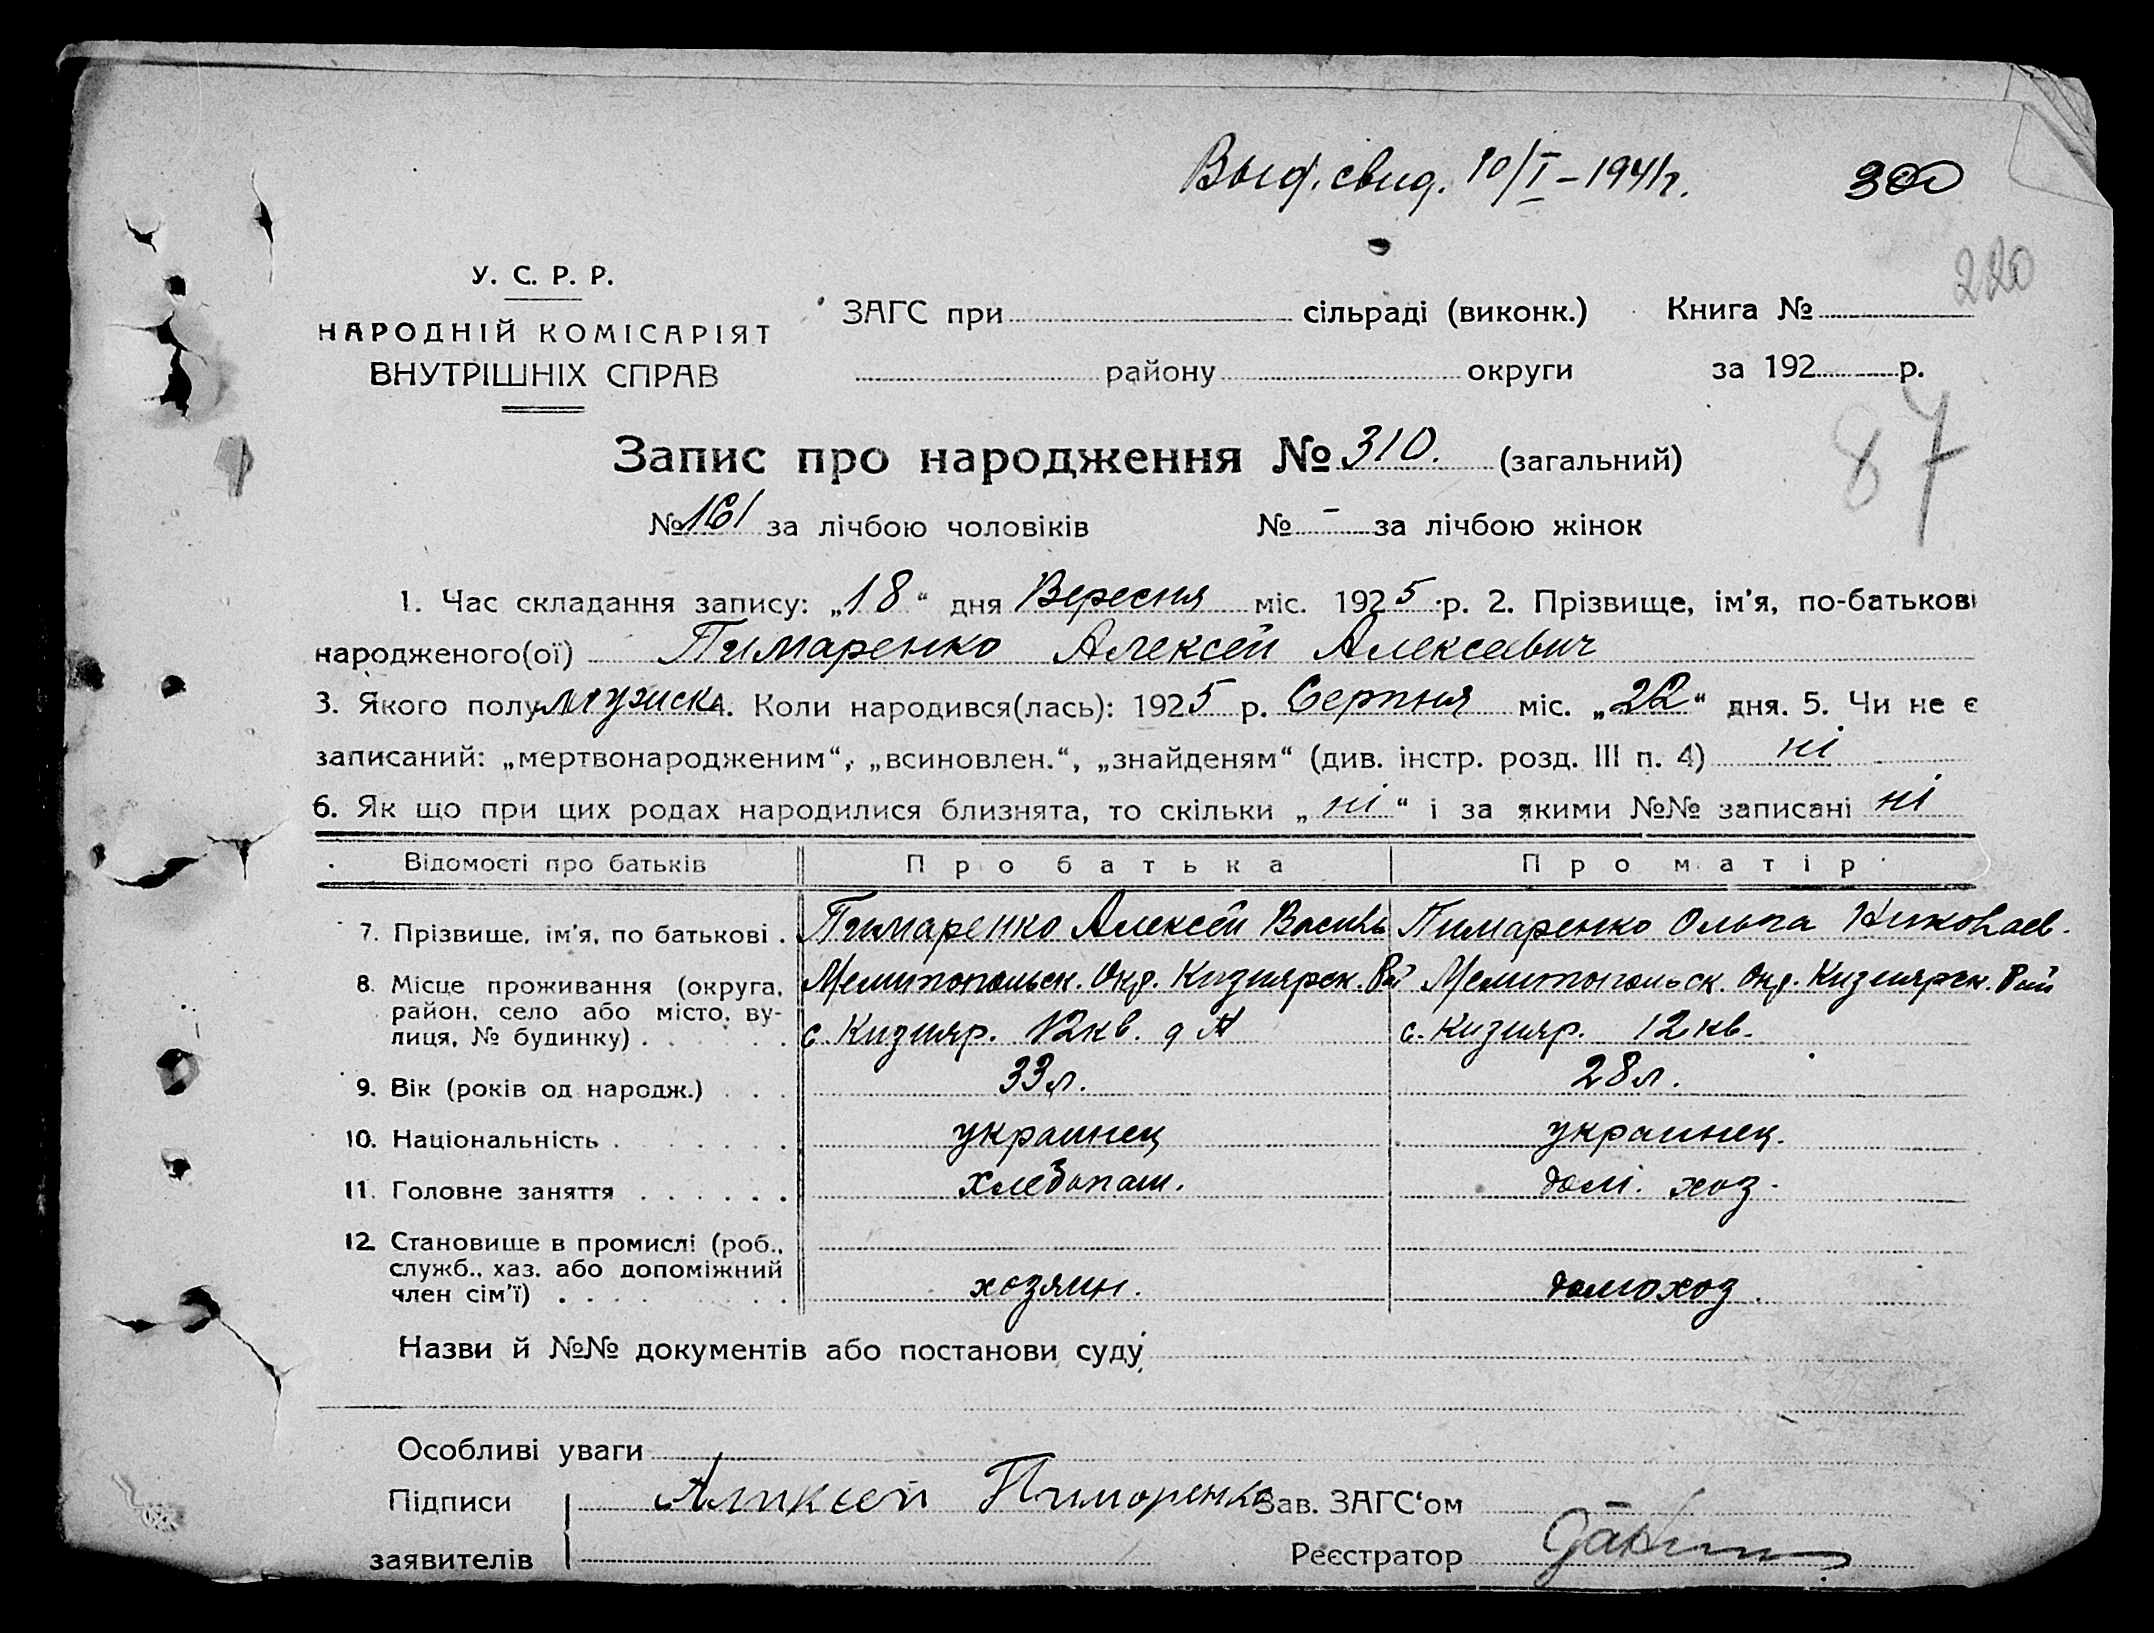 Выд. свид. 10/I – 1941 г. 300
220
У. С. Р. Р.
НАРОДНІЙ КОМІСАРІЯТ
ВНУТРІШНІХ СПРАВ
ЗАГС при сільраді (виконк.) Книга №
району округи за 192 р.
87
Запис про народження № 310. (загальний)
№ 161 за лічбою чоловіків № - за лічбою жінок
1. Час складання запису: „18“ дня Вересня міс. 1925 р. 2. Прізвище, ім'я, по-батькові
народженого(ої) Пимаренко Алексей Алексевич
3. Якого полу мужиск 4. Коли народився(лась): 1925 р. Серпня міс. „22“ дня. 5. Чи не є
записаний: „мертвонародженим“, „всиновлен.“, „знайденям“ (див. інстр. розд. III п. 4) ні
6. Як що при цих родах народилися близнята, то скільки „ні“ і за якими №№ записані ні
Відомості про батьків Про батька Про матір
7. Прізвище, ім'я, по батькові . Пимаренко Алексей Василь Пимаренко Ольга Николаев.
8. Місце проживання (округа, Мелитопольск. Окр. Кизиярск. Рай Мелитопольск. Окр. Кизиярск. Рай
район, село або місто, ву-
лиця, № будинку) . . . . . с. Кизияр. 12 кв. с. Кизияр. 12 кв.
9. Вік (років од народж.) . . . 33 л. 28 л.
10. Національність . . . . . . украинец украинец.
11. Головне заняття . . . . . . хлебопаш. дом. хоз.
12. Становище в промислі (роб.,
служб., хаз. або допоміжний
член сім'ї) . . . . . . хозяин. домохоз.
Назви й №№ документів або постанови суду
Особливі уваги
Підписи Аликсей Пиморенко Зав. ЗАГС‘ом
заявителів Реєстратор